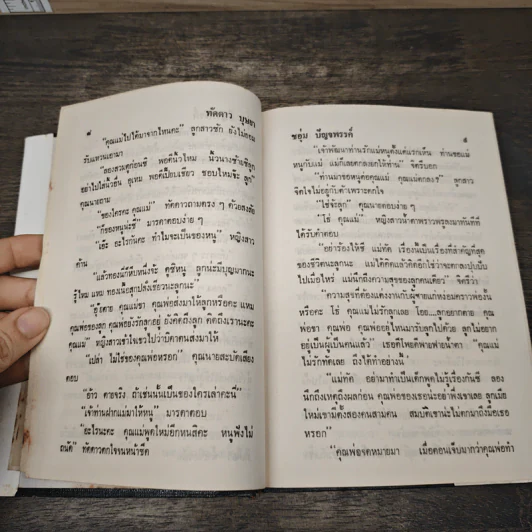 ๘
ทัดดาว บุษยา
"คุณแม่ไปได้มาจากไหนคะ" ลูกสาวซัก ยังไม่ยอม
รับแหวนเอามา
"ลองสวมดูก่อนซี พอดีนิ้วไหม นิ้วนางซ้ายซิลูก
อย่าไปใส่นิ้วอื่น พอดีเปี๊ยบเชียว ชอบไหมจ๊ะ ลูก"
คุณนายถาม
"ของใครคะ คุณแม่" ทัดดาวถามตรง ๆ ด้วยสงสัย
"ก็ของหนูน่ะซี" มารดาตอบง่าย ๆ
"เอ๊ะ อะไรกันคะ ทำไมจะเป็นของหนู" หญิงสาว
ค้าน
"แล้วทองนี่ก็หีบหนึ่งจ้ะ ดูซิหนู ลูกน่ะมีบุญมากนะ
รู้ไหม แหม ทองเนื้อสุกปลั่งเชียวนะลูกนะ"
คุณแม่ขา คุณพ่อส่งมาให้ลูกหรือคะ แหม
คุณพ่อของลูก คุณพ่อยังรักลูกอยู่ ยังคิดถึงลูก คิดถึงเรานะคะ
คุณแม่" หญิงสาวเข้าใจเรื่อยไปว่าบิดาตนส่งมาให้
"เปล่า ไม่ใช่ของคุณพ่อหรอก" คุณนายสะบัดเสียง
ตอบ
"อ้าว ตายจริง ถ้าเช่นนั้นเป็นของใครเล่าคะนี่"
"เจ้าท่านฝากแม่มาให้หนู" มารดาตอบ
"อะไรนะคะ คุณแม่พูดใหม่อีกหนสิคะ หนูฟังไม่
ถนัด" ทัดดาวตกใจจนหน้าซีด
ชอุ่ม ปัญจพรรค์
๙
"เจ้าพัฒนาท่านรักแม่หนูตั้งแต่แรกเห็น ท่านขอแม่
หนูกับแม่ แม่ก็เลยตกลงยกให้ท่าน" จิตรีบอก
"ท่านมาขอหนูต่อคุณแม่ คุณแม่ตกลง?" ลูกสาว
จิตใจไม่อยู่กับตัวเพราะตกใจ
"ใช่จ้ะลูก" คุณนายตอบง่าย ๆ
"โธ่ คุณแม่" หญิงสาวน้ำตาพราวพรูลงมาทันทีที่
ได้รับคำตอบ
"อย่าร้องไห้ซี แม่ทัด เรื่องนี้เป็นเรื่องที่สำคัญที่สุด
ของชีวิตนะลูกนะ แม่ได้คิดแล้วคิดอีกใช่ว่าจะตกลงปุบปับ
ไปเมื่อไหร่ แม่นึกถึงความสุขของลูกคนเดียว" จิตรีว่า
"ความสุขที่ต้องแต่งงานกับผู้ชายแก่หง่อมคราวพ่อนั้น
หรือคะ โธ่ คุณแม่ไม่รักลูกเลย โอย...ลูกอยากตาย คุณ
พ่อขา คุณพ่อ คุณพ่ออยู่ไหนมารับลูกไปด้วย ลูกไม่อยาก
อยู่เป็นผู้เป็นคนแล้ว" เธอตีโพยตีพายฟายน้ำตา "คุณแม่
ไม่รักทัดเลย ถึงได้ทำอย่างนี้"
"แม่ทัด อย่ามาทำเป็นเด็กพูดไม่รู้เรื่องกันซี ลอง
นึกถึงเหตุถึงผลก่อน คุณพ่อของเธอน่ะอย่าพึ่งเขาเลย ลูกเมีย
ใหม่เขามีตั้งสองคนสามคน สมบัติเขาน่ะไม่ตกมาถึงมือเธอ
หรอก"
"คุณพ่อจดหมายมา เมื่อตอนเจ็บมากว่าคุณพ่อทำ